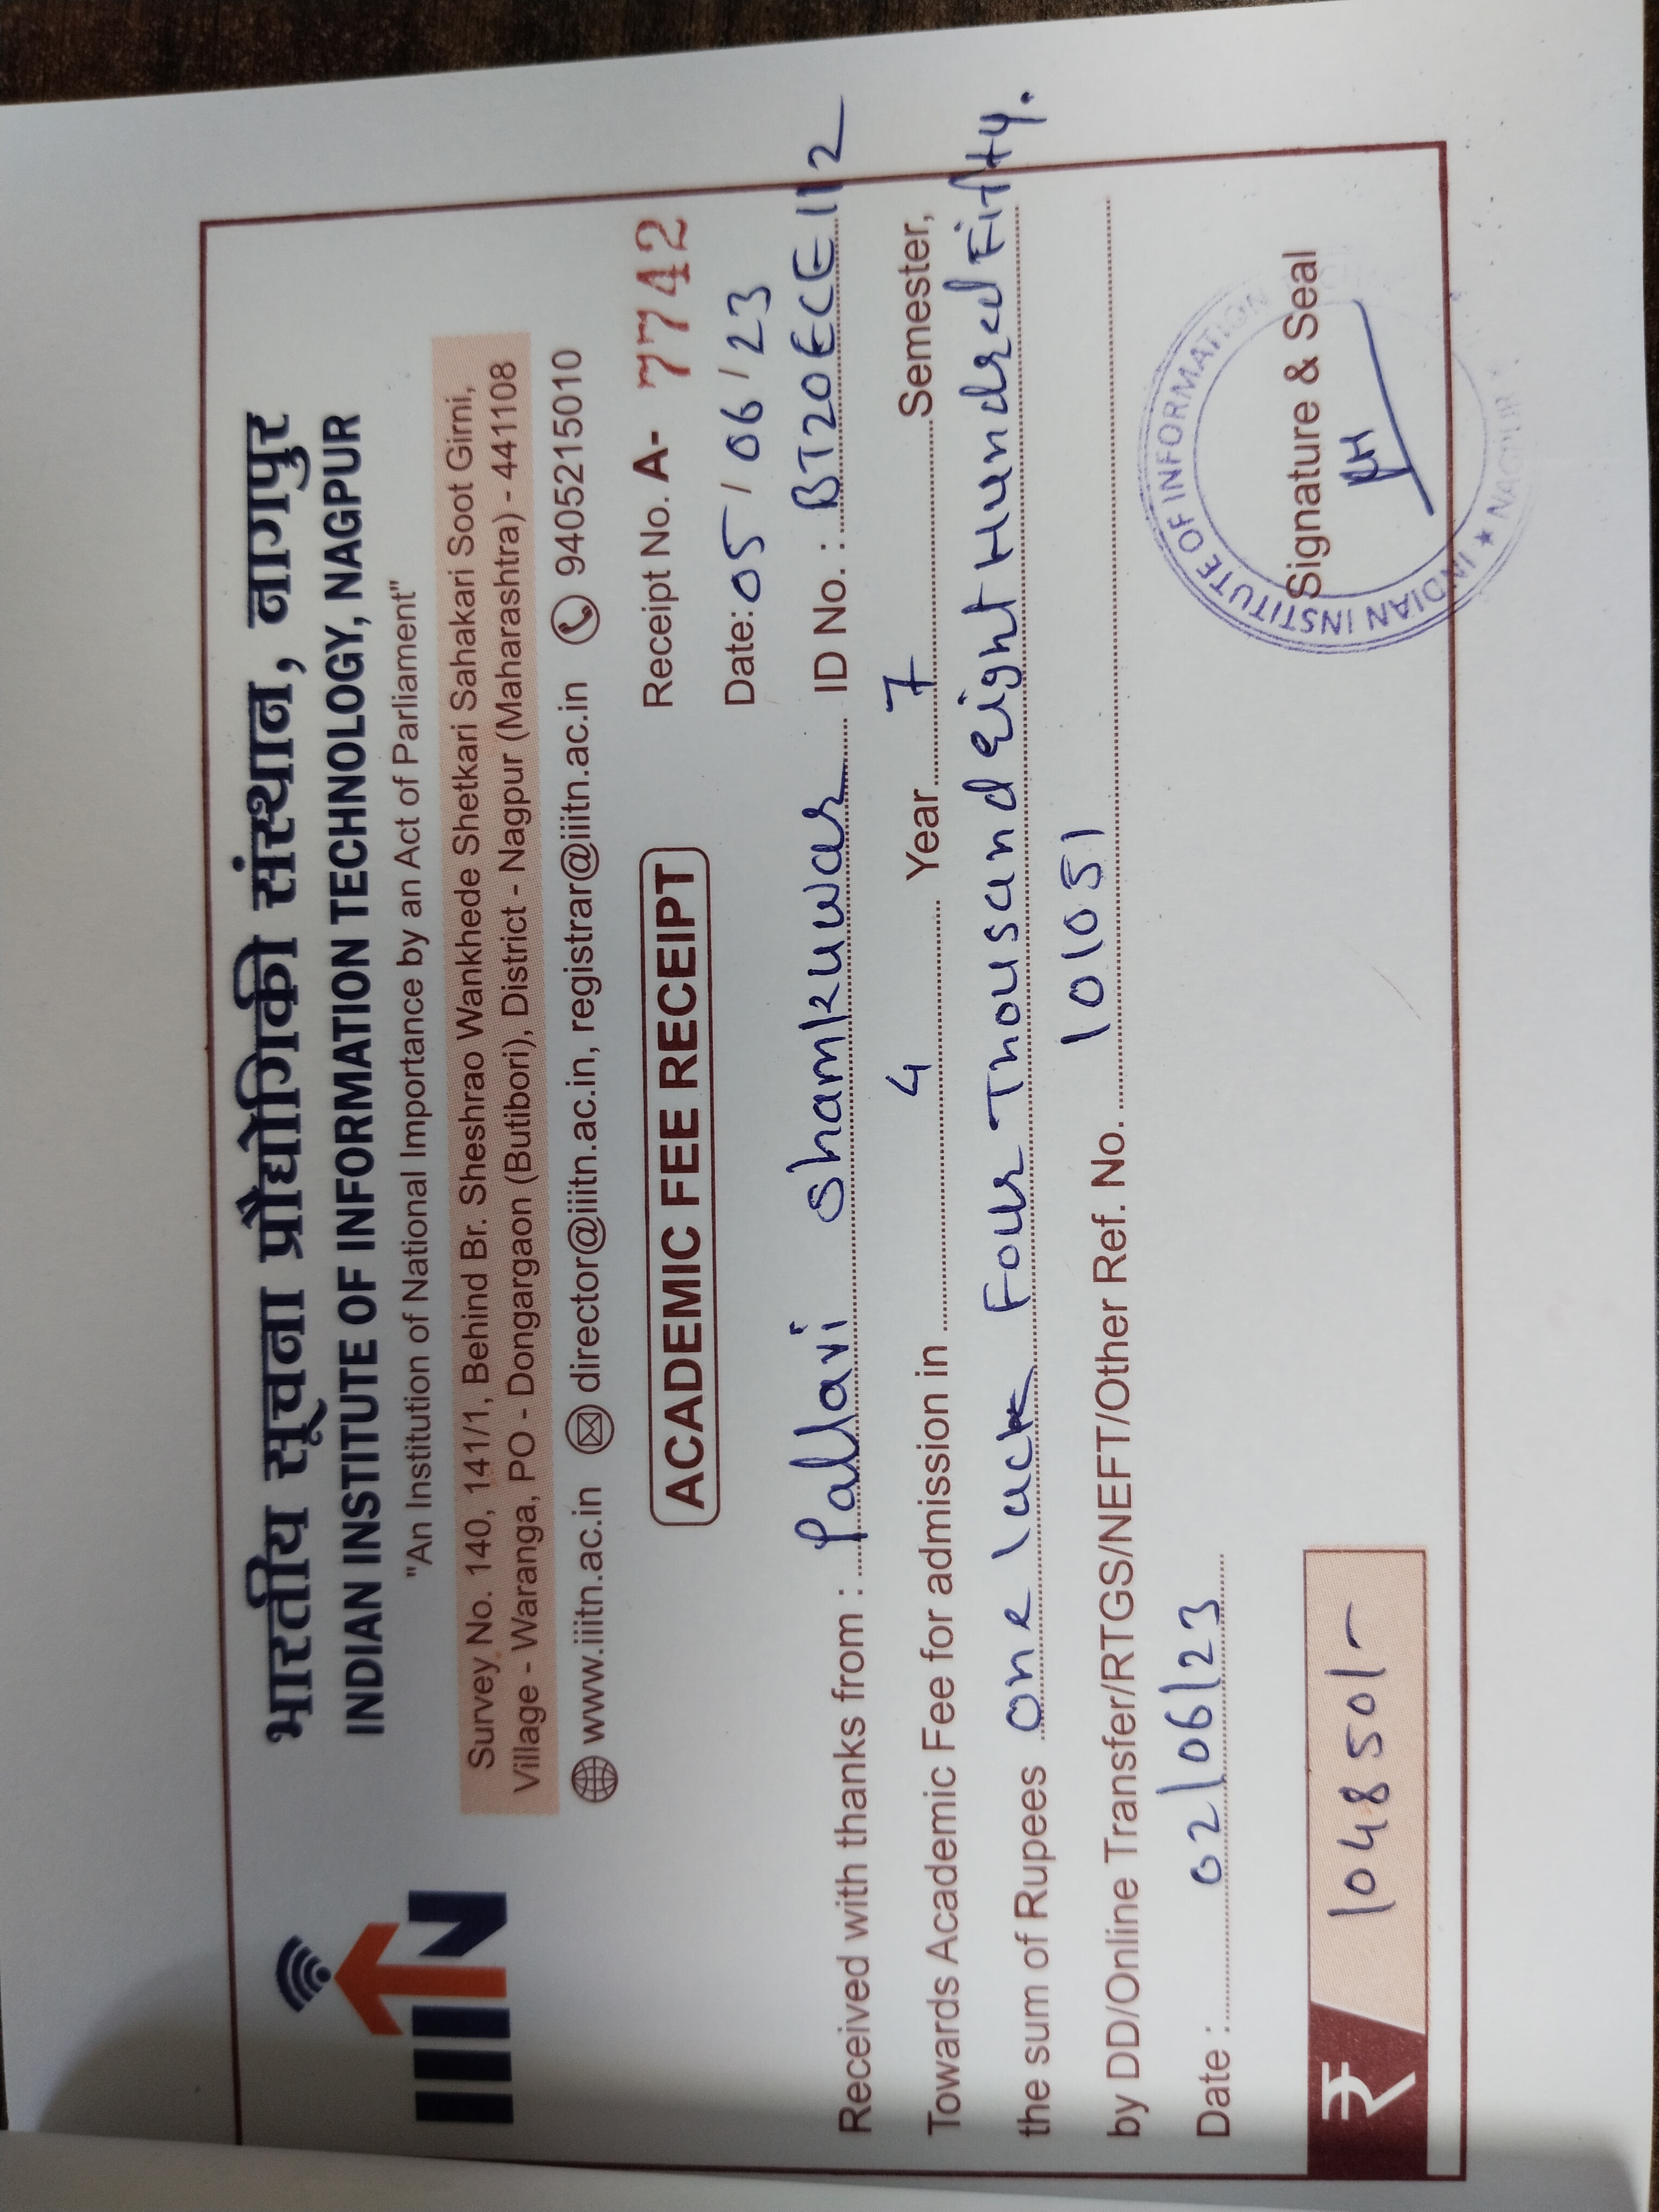 भारतीय सूचना प्रौद्योगिकी संस्थान, नागपुर
IIITN
INDIAN INSTITUTE OF INFORMATION TECHNOLOGY, NAGPUR
"An Institution of National Importance by an Act of Parliament"
Survey No. 140, 141/1, Behind Br. Sheshrao Wankhede Shetkari Sahakari Soot Girni,
Village - Waranga, PO - Dongargaon (Butibori), District - Nagpur (Maharashtra) - 441108
www.iiitn.ac.in director@iiitn.ac.in, registrar@iiitn.ac.in 9405215010
ACADEMIC FEE RECEIPT
Receipt No. A- 7742
Date: 05 / 06 / 23
Received with thanks from : Pallavi Shamkuwar ID No. : BT20ECE112
Towards Academic Fee for admission in 4 Year 7 Semester,
the sum of Rupees One lack Four Thousand Eight Hundred Fifty.
by DD/Online Transfer/RTGS/NEFT/Other Ref. No. 101051
Date : 02/06/23
₹ 104850/-
Signature & Seal
INDIAN INSTITUTE OF INFORMATION
★ NAGPUR